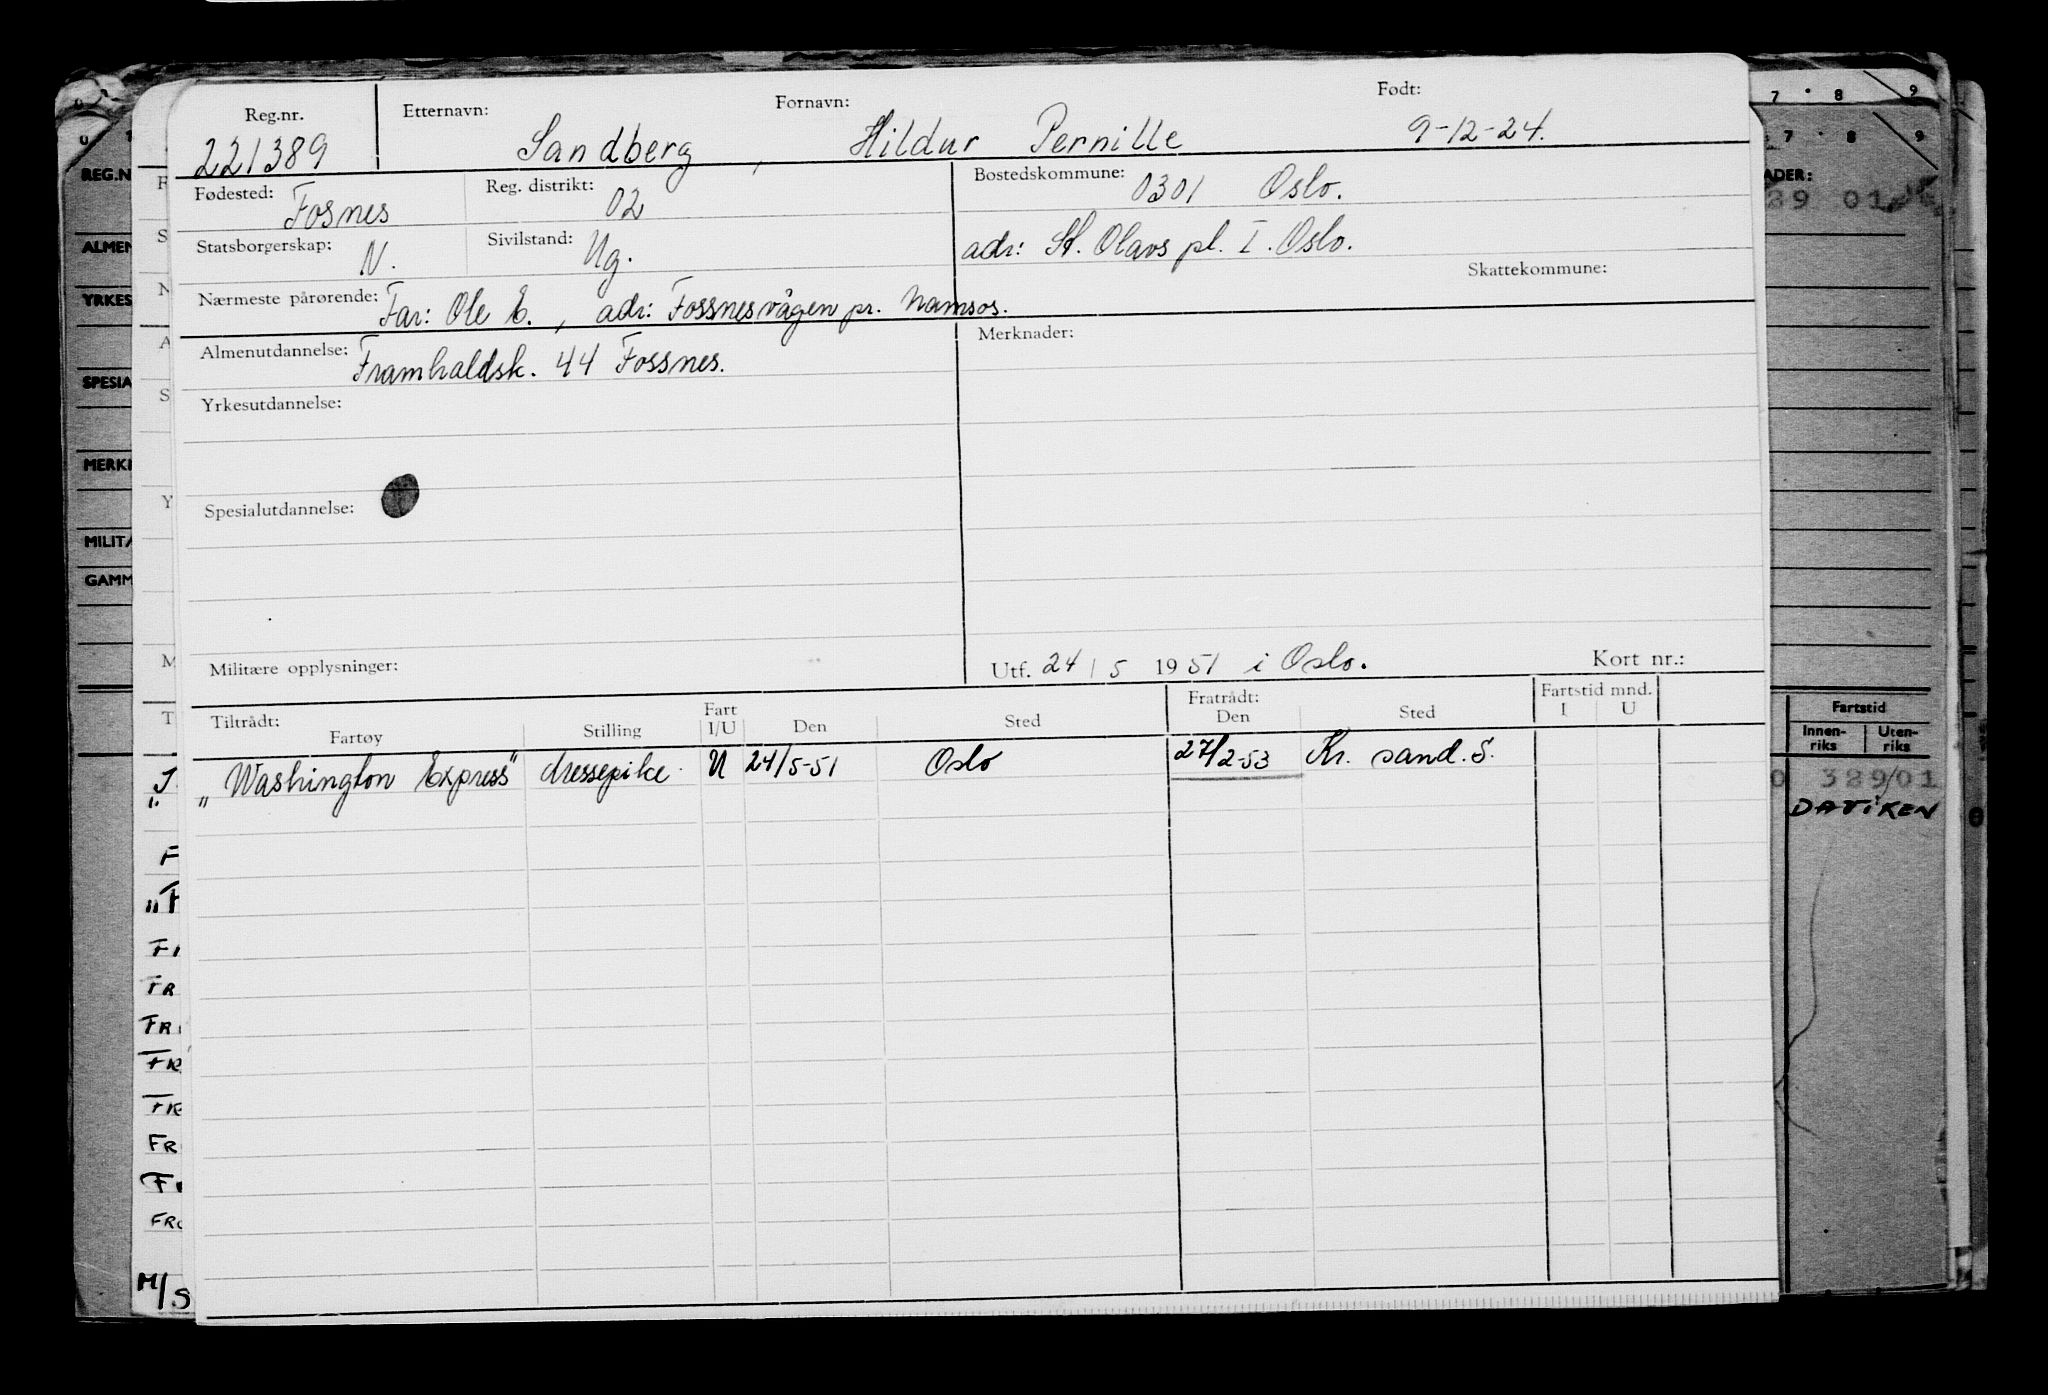 Reg.nr. Etternavn: Fornavn: Født:
221389 Sandberg, Hildur Pernille 9-12-24.
Fødested: Fosnes Reg. distrikt: 02 Bostedskommune: 0301 Oslo.
Statsborgerskap: N. Sivilstand: Ug. adr: St. Olavs pl. I. Oslo.
Skattekommune:
Nærmeste pårørende: Far: Ole E., adr: Fossnesvågen pr. Namsos.
Almenutdannelse: Framhaldsk. 44 Fossnes. Merknader:
Yrkesutdannelse:
Spesialutdannelse:
Militære opplysninger: Utf. 24/5 1951 i Oslo. Kort nr.:
Tiltrådt: Fart Fratrådt: Fartstid mnd.
Fartøy Stilling I/U Den Sted Den Sted I U
„Washington Express" dressepike U 24/5-51 Oslo 27/2-53 Kr. sand. S.
REG.N
ALMEN
YRKES
SPESIA
MERKN
MILITÆ
GAMM
F
S
N
A
S
Y
M
T
FR
FRO
M/S
7 8 9
7 8 9
ADER:
39 01
Fartstid
Innen-riks Uten-riks
0 389/01
DAVIKEN